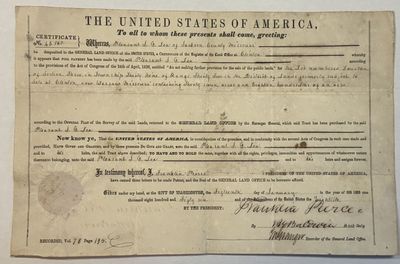 THE UNITED STATES OF AMERICA,
To all to whom these presents shall come, greeting:
CERTIFICATE
No.
Whereas, Pleasant J. G. Lea of Jackson County Missouri
ha deposited in the GENERAL LAND OFFICE of the UNITED STATES, a Certificate of the Register of the Land Office at Clinton whereby
it appears that FULL PAYMENT has been made by the said Pleasant J. G. Lea according
to the provisions of the Act of Congress of the 24th of April, 1820, entitled "An act making further provision for the sale of the public lands," for the Lot numbered
of Section Three in Township Forty of Range Thirty in the District of Lands subject to
sale at Clinton, now Missouri containing Forty acres and
according to the Official Plat of the Survey of the said Lands, returned to the GENERAL LAND OFFICE by the Surveyor General, which said Tract has been purchased by the said
Pleasant J. G. Lea
NOW KNOW YE, That the UNITED STATES OF AMERICA, in consideration of the premises, and in conformity with the several Acts of Congress in such case made and
provided, HAVE GIVEN AND GRANTED, and by these presents DO GIVE AND GRANT, unto the said Pleasant J. G. Lea
and to his heirs, the said Tract above described; TO HAVE AND TO HOLD the same, together with all the rights, privileges, immunities and appurtenances of whatsoever nature
thereunto belonging, unto the said Pleasant J. G. Lea and to his heirs and assigns forever.
In testimony whereof, I, Franklin Pierce PRESIDENT OF THE UNITED STATES OF AMERICA,
have caused these letters to be made Patent, and the Seal of the GENERAL LAND OFFICE to be hereunto affixed.
Given under my hand, at the CITY OF WASHINGTON, the Sixteenth day of January in the Year of our Lord one
thousand eight hundred and fifty six and of the Independence of the United States the Eightieth
BY THE PRESIDENT: Franklin Pierce
By Baldwin Sec'y
Recorder of the General Land Office.
RECORDED, Vol. 78 Page